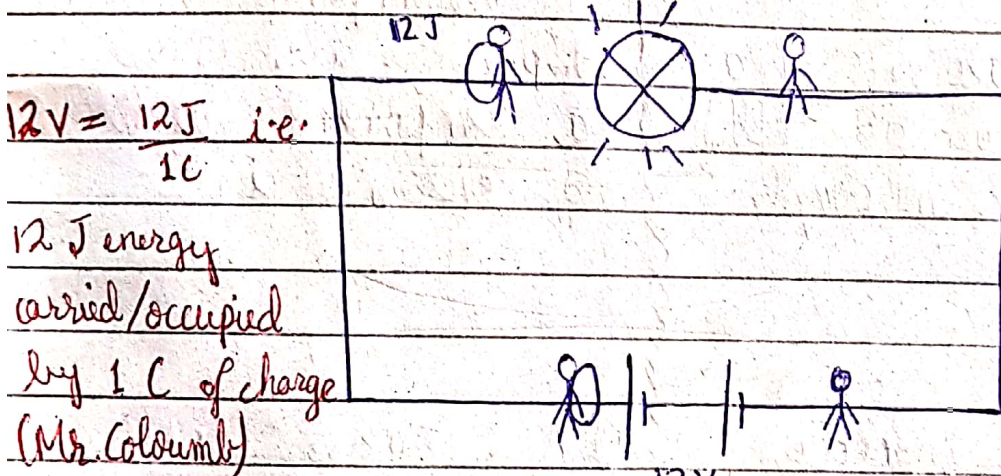 12 J
12V = 12J i.e.
1C
12 J energy
carried/occupied
by 1 C of charge
(Mr. Coloumb)
12V